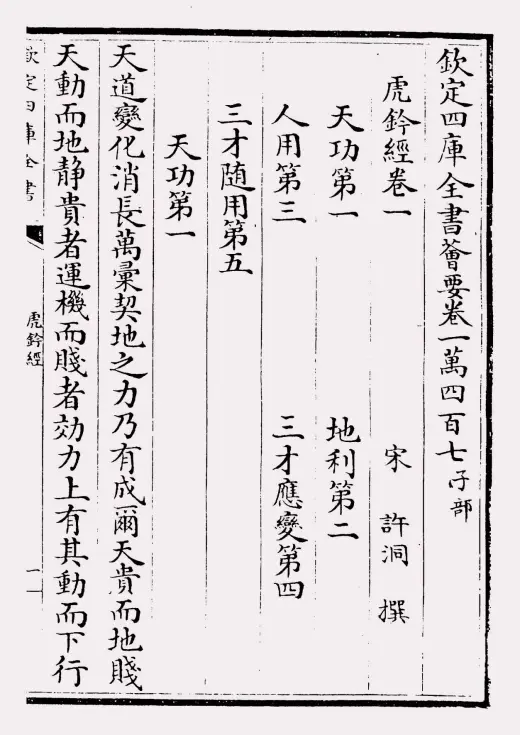 欽定四庫全書薈要卷一萬四百七子部
虎鈐經卷一　宋　許洞　撰
天功第一　地利第二
人用第三　三才應變第四
三才随用第五
天功第一
天道變化消長萬彙契地之力乃有成爾天貴而地賤
天動而地静貴者運機而賤者効力上有其動而下行
欽定四庫全書
虎鈐經
一